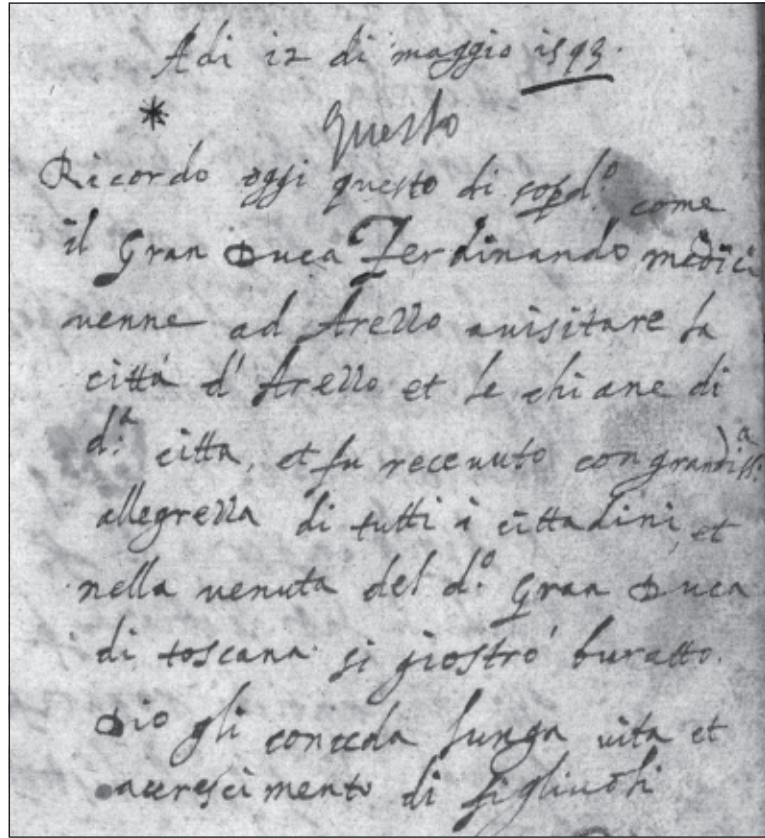 Adi 12 di maggio 1593.
*
questo
Ricordo oggi questo di sopd.º come
il Gran Duca Ferdinando medici
venne ad Arezzo avisitare la
città d' Arezzo et le chiane di
d.ª citta, et fu receuuto con grandiss.ª
allegrezza di tutti i cittadini, et
nella venuta del d.º Gran Duca
di toscana si giostrò buratto.
Dio gli conceda lunga vita et
accrescimento di figliuoli